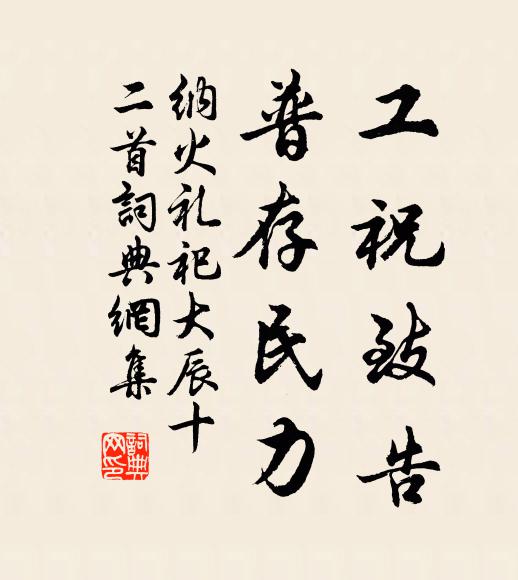 工祝致告
普存民力
纳火礼祀大辰十
二首詞典網集
詞典
网印